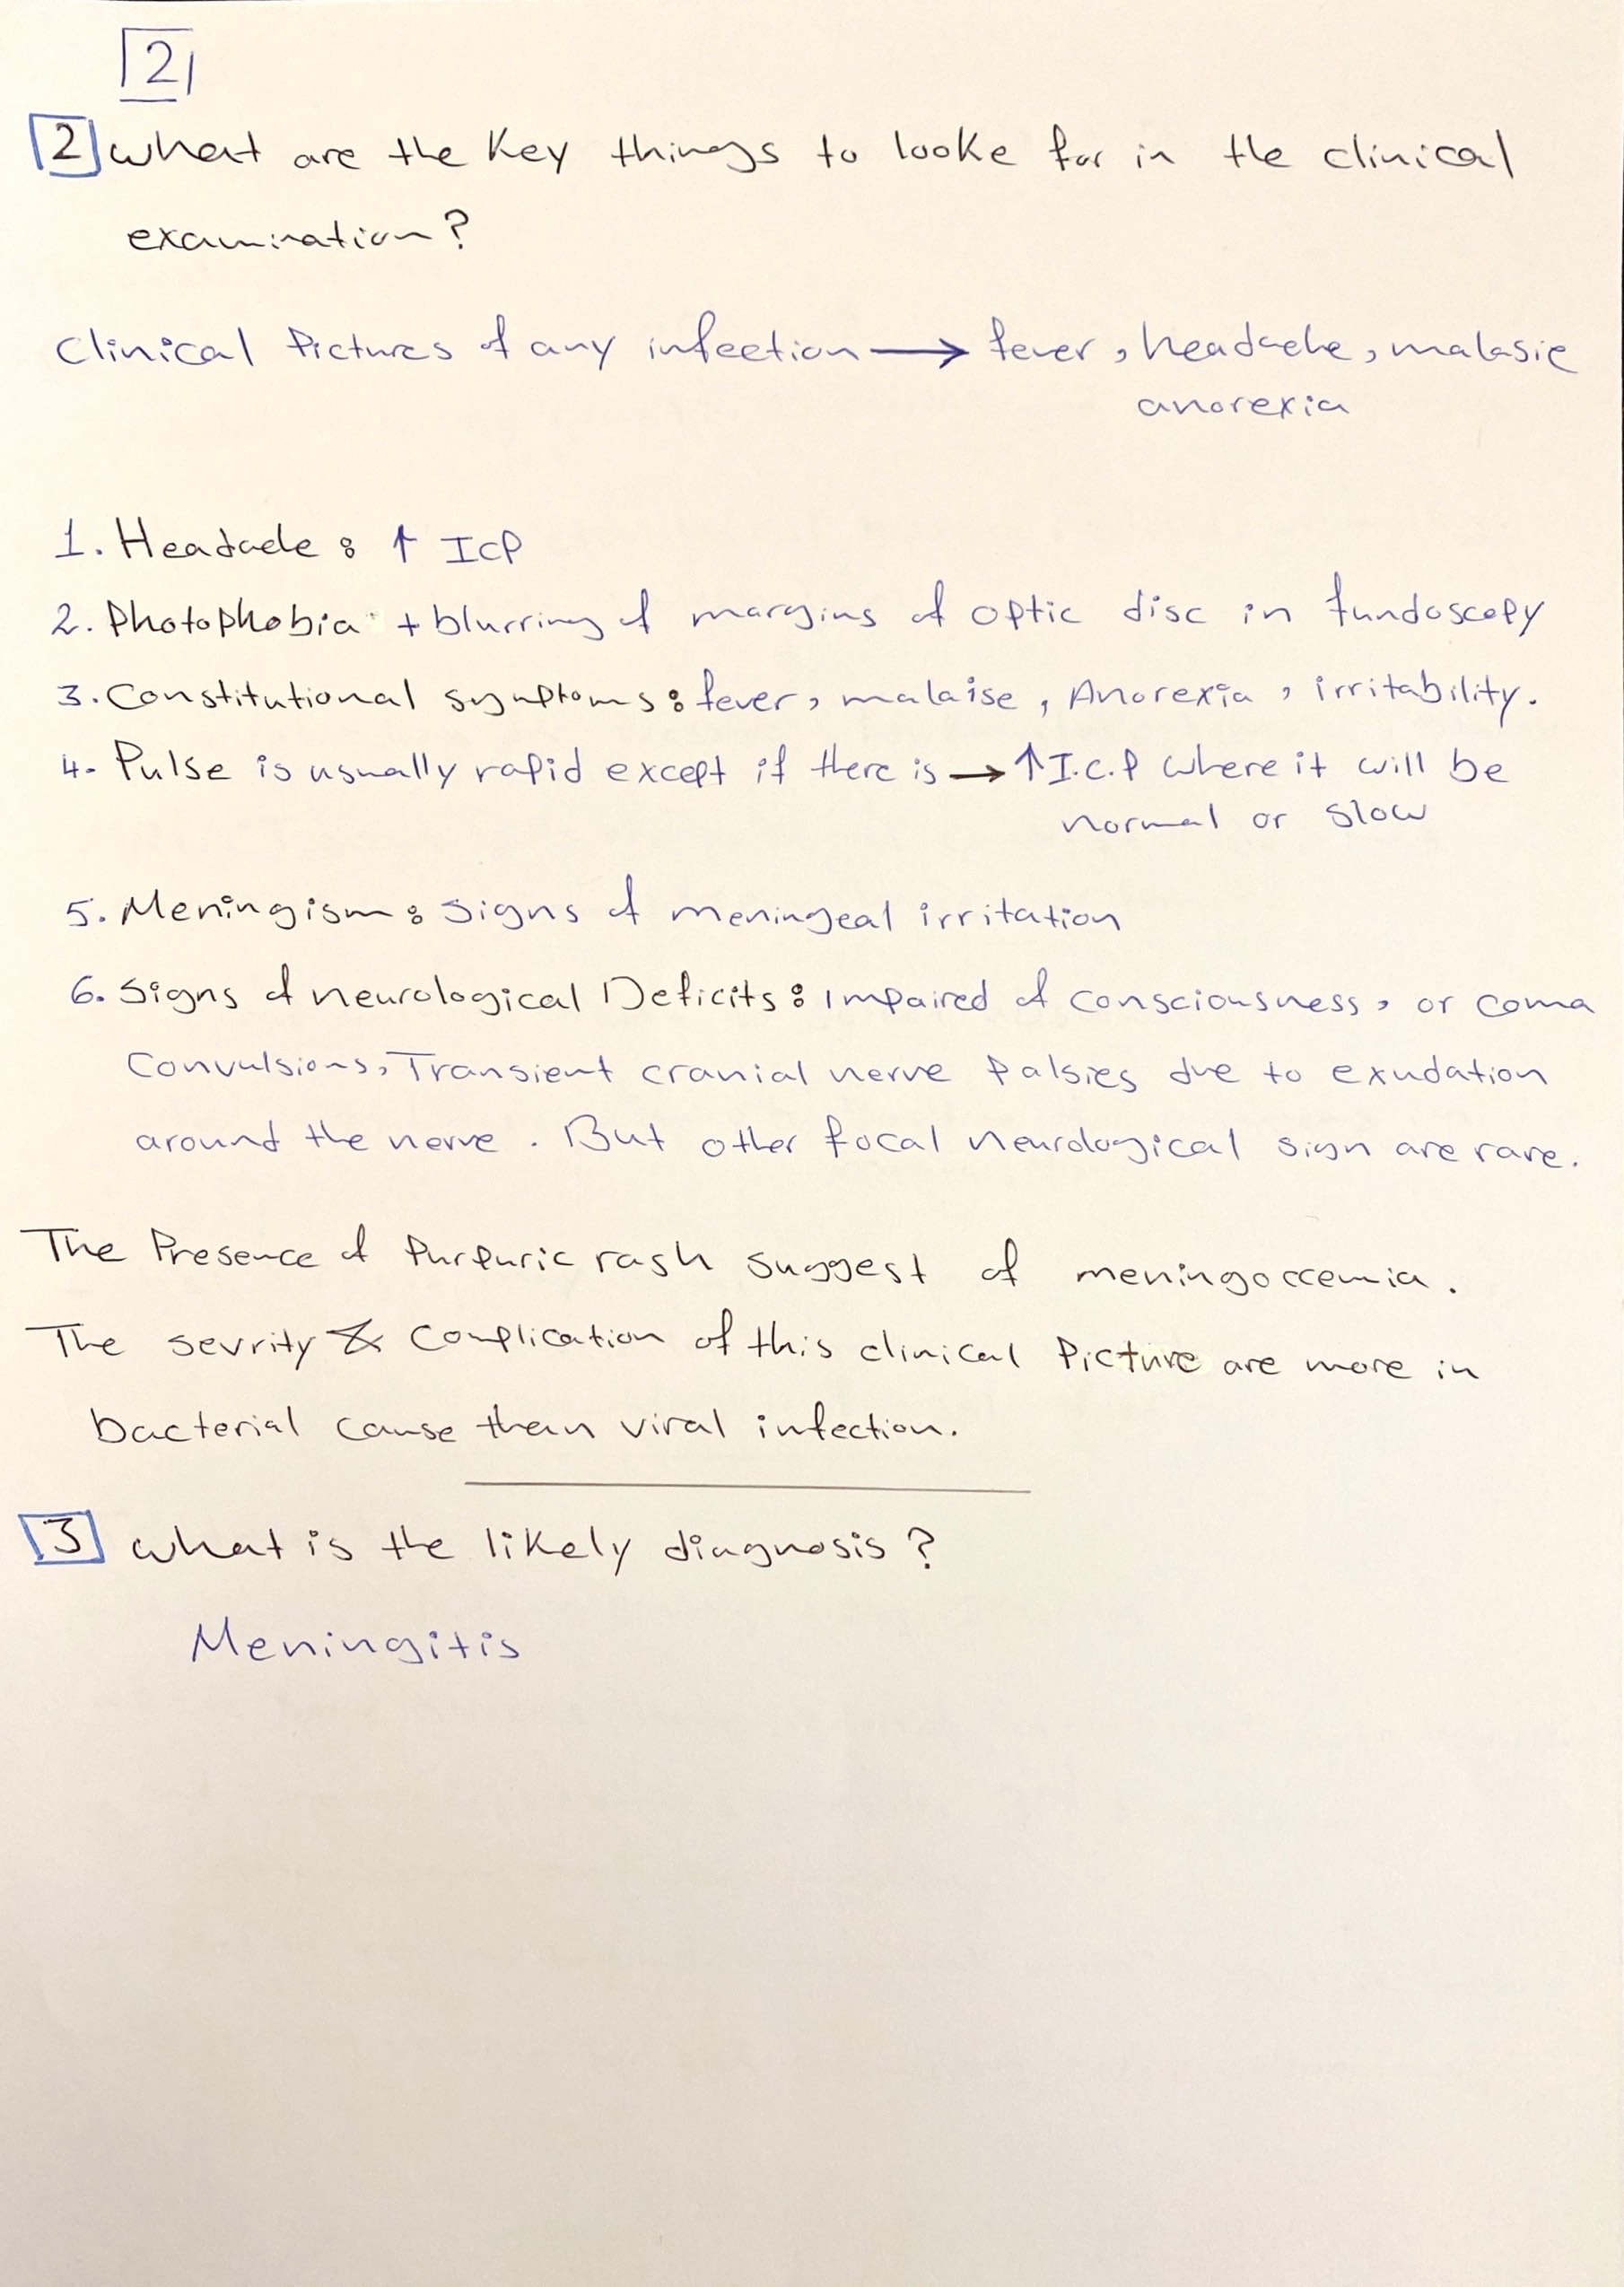 2
2 what are the key things to looke for in the clinical
examination?
Clinical Pictures of any infection → fever, headache, malasie
anorexia
1. Headache: ↑ ICP
2. Photophobia + blurring of margins of optic disc in fundoscopy
3. Constitutional symptoms: fever, malaise, Anorexia, irritability.
4- Pulse is usually rapid except if there is → ↑I.C.P where it will be
normal or slow
5. Meningism: signs of meningeal irritation
6. Signs of neurological Deficits: impaired of consciousness, or coma
Convulsions, Transient cranial nerve Palsies due to exudation
around the nerve. But other focal neurological sign are rare.
The Presence of Purpuric rash suggest of meningoccemia.
The sevrity & Complication of this clinical Picture are more in
bacterial cause then viral infection.
3 what is the likely diagnosis?
Meningitis